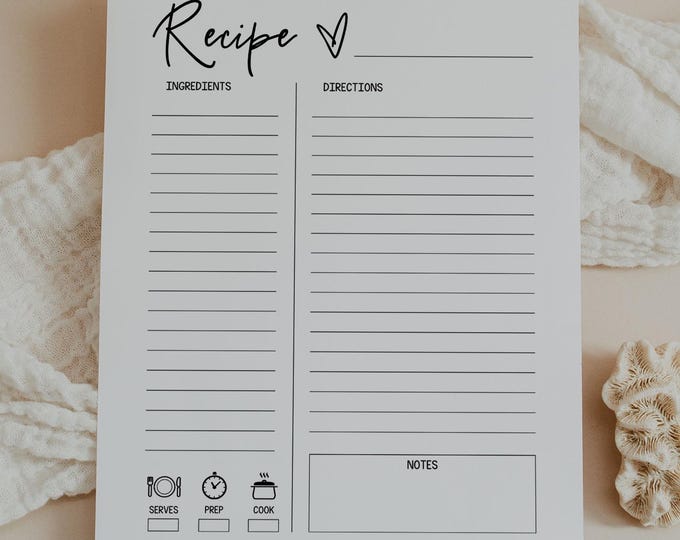 Recipe
INGREDIENTS
DIRECTIONS
NOTES
SERVES PREP COOK